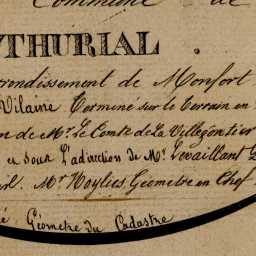 Commune de
THURIAL.
rondissement de Monfort
Vilaine Terminé sur le Terrain en
n de Mr. Le Comte de la Villegontier
et sous La direction de Mr. Levaillant
Mr. Noylies, Géometre en Chef
Géometre du Cadastre